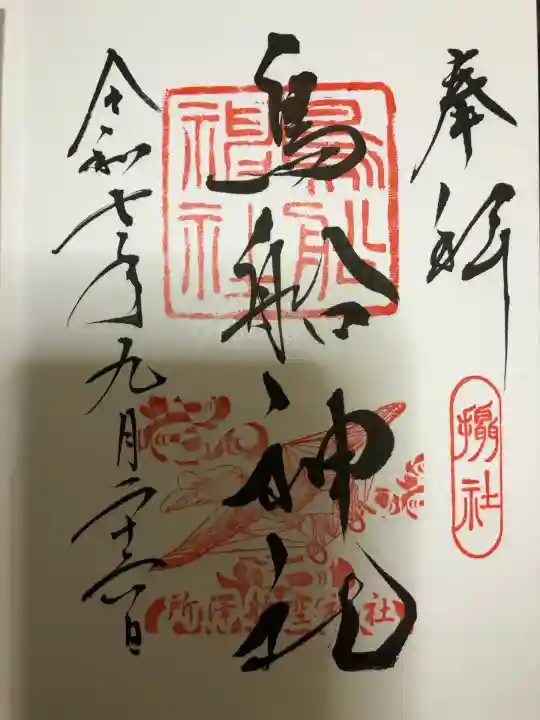 奉拝
攝社
鳥船神社
鳥船神社
令和七年九月二十六日